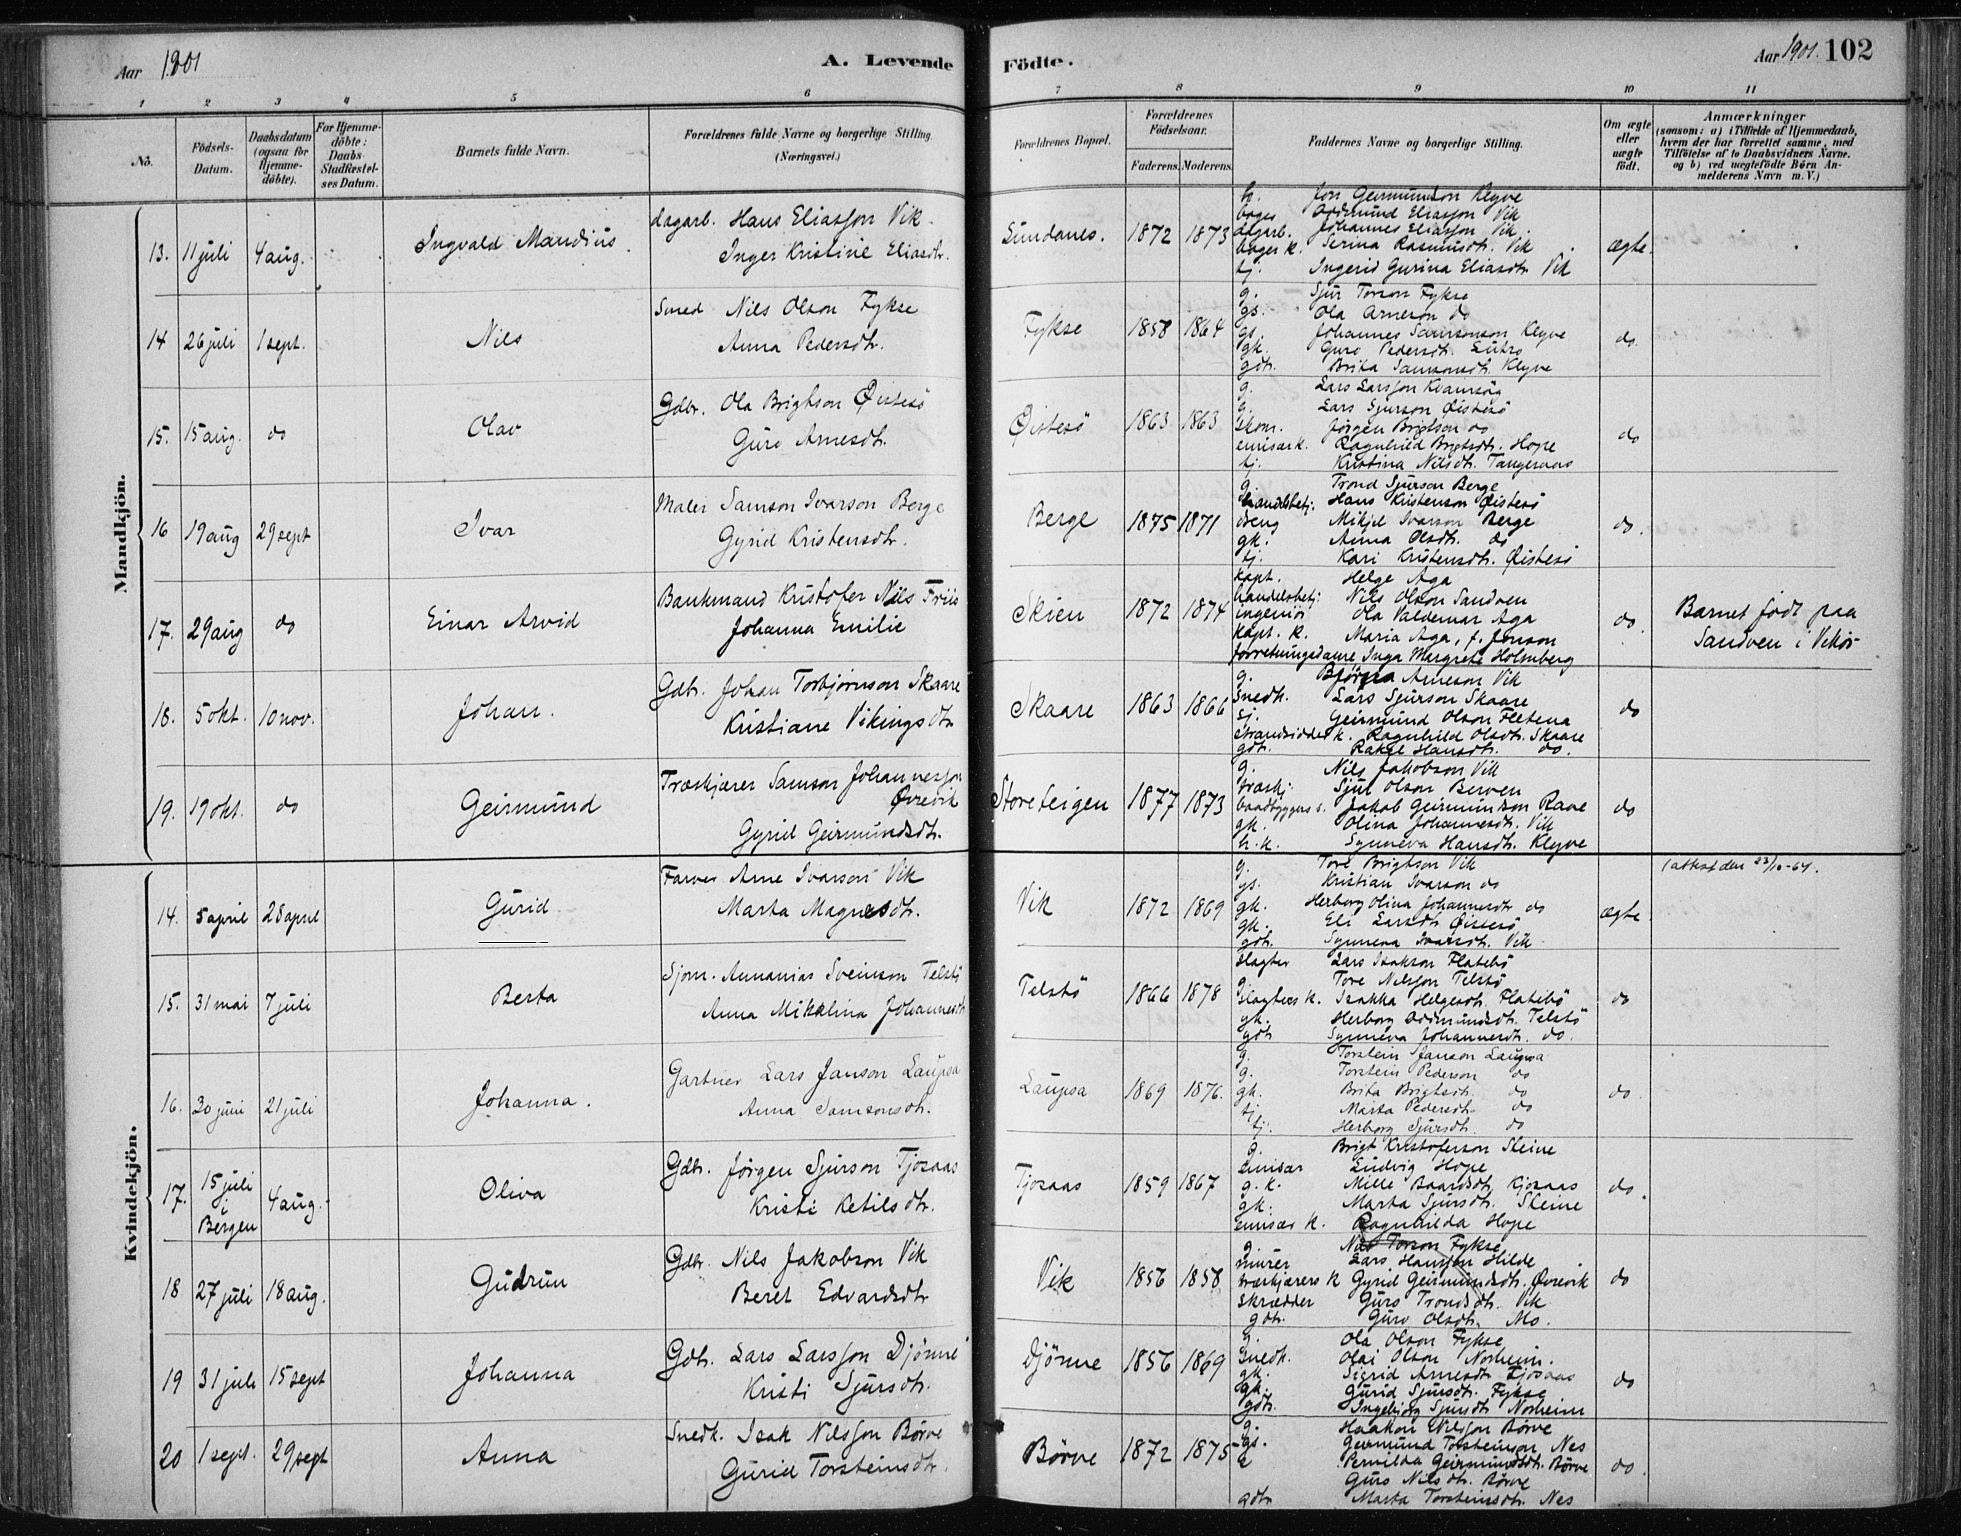 Aar 1901
A. Levende
Födte.
Aar 1901.
102
1 2 3 4 5 6 7 8 9 10 11
No.
Födsels-Datum.
Daabsdatum (ogsaa for Hjemme-döbte).
For Hjemme-döbte: Daabs Stadfæstel-ses Datum.
Barnets fulde Navn.
Forældrenes fulde Navne og borgerlige Stilling. (Næringsvei.)
Forældrenes Bopæl.
Forældrenes Födselsaar.
Faderens. Moderens.
Faddernes Navne og borgerlige Stilling.
Om ægte eller uægte födt.
Anmærkninger
(saasom: a) i Tilfælde af Hjemmedaab, hvem der har forrettet samme, med Tilföielse af to Daabsvidners Navne. og b) ved uægtefödte Börn An-melderens Navn m. V.)
Mandkjön.
13. 11 juli 4 aug. Ingvald Mandius.
dagarb. Hans Eliasson Vik
Inger Kristine Eliasdtr.
Sundanes. 1872 1873
h. Jon Geirmundson Klyve
Oddmund Eliasson Vik
dagarb. Johannes Eliasson Vik.
k. Serina Rasmusdtr. Vik
tj. Ingerid Gurina Eliasdtr Vik
ægte.
14 26 juli 1 sept. Nils
Smed Nils Olson Fykse
Anna Pedersdtr.
Fykse 1858 1864
g. Sjur Torson Fykse
gs. Ola Arneson do
gs. Johannes Samsonson Klyve
gk. Guro Pedersdtr.
gdt. Brita Samsondtr. Klyve
do.
15. 15 aug. do Olav
Gdbr. Ola Brigtson Øistesö
Guro Arnesdtr.
Øistesö 1863 1863
g. Lars Larsson Kvamsög
g. Lars Sjurson Øistesö
skom. Jörgen Brigtson do
emisær k. Ragnhild Brigtsdtr. Hope
tj. Kristina Nilsdtr. Tangeraas
do
16 19 aug 29 sept Ivar
Maler Samson Ivarson Berge
Gyrid Kristensdtr.
Berge 1875 1871
g. Trond Sjurson Berge
handelsbetj: Hans Kristenson Øistesö
dreng Mikjel Ivarson Berge
gk. Anna Olsdtr. do
tj. Kari Kristensdtr. Øistesö
do.
17. 29 aug do Einar Arvid
Bankmand Kristofer Nils Friis
Johanna Emilie
Skien 1872 1874
kapt. Helge Aga
handelsbetj: Nils Olson Sandven
ingeniör Ola Valdemar Aga
kapt. k. Maria Aga, f. Jonson
forretningsdame Inga Margrete Holmberg
do.
Barnet födt paa
Sandven i Vikör
18. 5 okt. 10 nov. Johan.
Gdbr. Johan Torbjörnson Skaare
Kristiane Vikingsdtr
Skaare 1863 1866
g. Arneson Vik
snedk. Lars Sjurson Skaare
sj. Geirmund Olson Fletena
strandsidder k. Ragnhild Olsdtr. Skaare
gdt. Rakel Hansdtr. do.
do
19. 19 okt. do Geirmund
Træskjærer Samson Johannesson
Øvrevik
Gyrid Geirmundsdtr.
Storeteigen 1877 1873
g. Nils Jakobson Vik
træskj: Sjur Olson Berven
baadbyggers s. Jakob Geirmundson Rave
gk. Olina Johannesdtr. Vik
h.k. Synneva Hansdtr. Klyve
do
Kvindekjön.
14. 5 april 28 april Gurid
Farver Arne Ivarson Vik
Marta Magnesdtr.
Vik 1872 1869
g. Tore Brigtson Vik
gs. Kristian Ivarson do
gk. Herborg Olina Johannesdtr do
gk. Eli Larsdtr Øistesö
gdt. Synneva Ivarsdtr. Vik
ægte
(attest den 23/10-64.
15. 31 mai 7 juli Berta
Sjom. Annanias Sveinson Telstö
Anna Mikalina Johannesdtr
Telstö 1866 1878
slagter Lars Isakson Flatebö
g. Tore Nilsson Telstö
slagters k. Isakka Helgesdtr. Flatebö
gk. Herborg Oddmundsdtr. Telstö
gdt Synneva Johannesdt. do.
do
16. 30 juni 21 juli Johanna.
Gartner Lars Janson Laupsa
Anna Samsonsdtr.
Laupsa 1869 1876.
g. Torstein Janson Laupsa
g. Torstein Pederson do
gk. Brita Brigtsdtr. do
tj. Marta Pedersdt. do
tj. Herborg Sjursdtr. do
do.
17. 15 juli i Bergen 4 aug. Oliva
Gdbr. Jörgen Sjurson Tjosaas
Kristi Ketilsdtr.
Tjosaas 1859 1867
g. Brigt Kristoferson Steine
emisær Ludvig Hope
g.k. Mille Baardsdtr. Kjosaas
gk. Marta Sjursdtr. Steine
emisær k. Ragnhilda Hope
do.
18 27 juli 18 aug. Gudrun
Gdbr. Nils Jakobson Vik
Beret Edvardsdtr
Vik 1856 1858
g. Nils Torson Fykse
murer Lars Hansson Hilde
træskjærers k Gyrid Geirmundsdtr. Øvrevik
skrædder Guro Trondsdtr. Vik
gdt. Guro Olsdtr. Mo.
do
19 31 juli 15 sept Johanna
Gdb. Lars Larsson Djönne
Kristi Sjursdtr.
Djönne 1856 1869
g. Ola Olson Fykse
snedk. Olai Olson Norheim.
gk. Sigrid Arnesdtr Tjosaas
gk. Gurid Sjursdtr. Fykse
gdt. Ingebjörg Sjursdtr Norheim
do
20 1 sept. 29 sept Anna
Snedk. Isak Nilsson Börve
Gurid Torsteinsdtr.
Börve 1872 1875
g. Haakon Nilsson Börve
gs. Geirmund Torsteinson Nes
g Pernilda Geirmundsdtr. Börve
Guro Nilsdtr. Börve
gdtr Marta Torsteinsdtr. Nes
do.